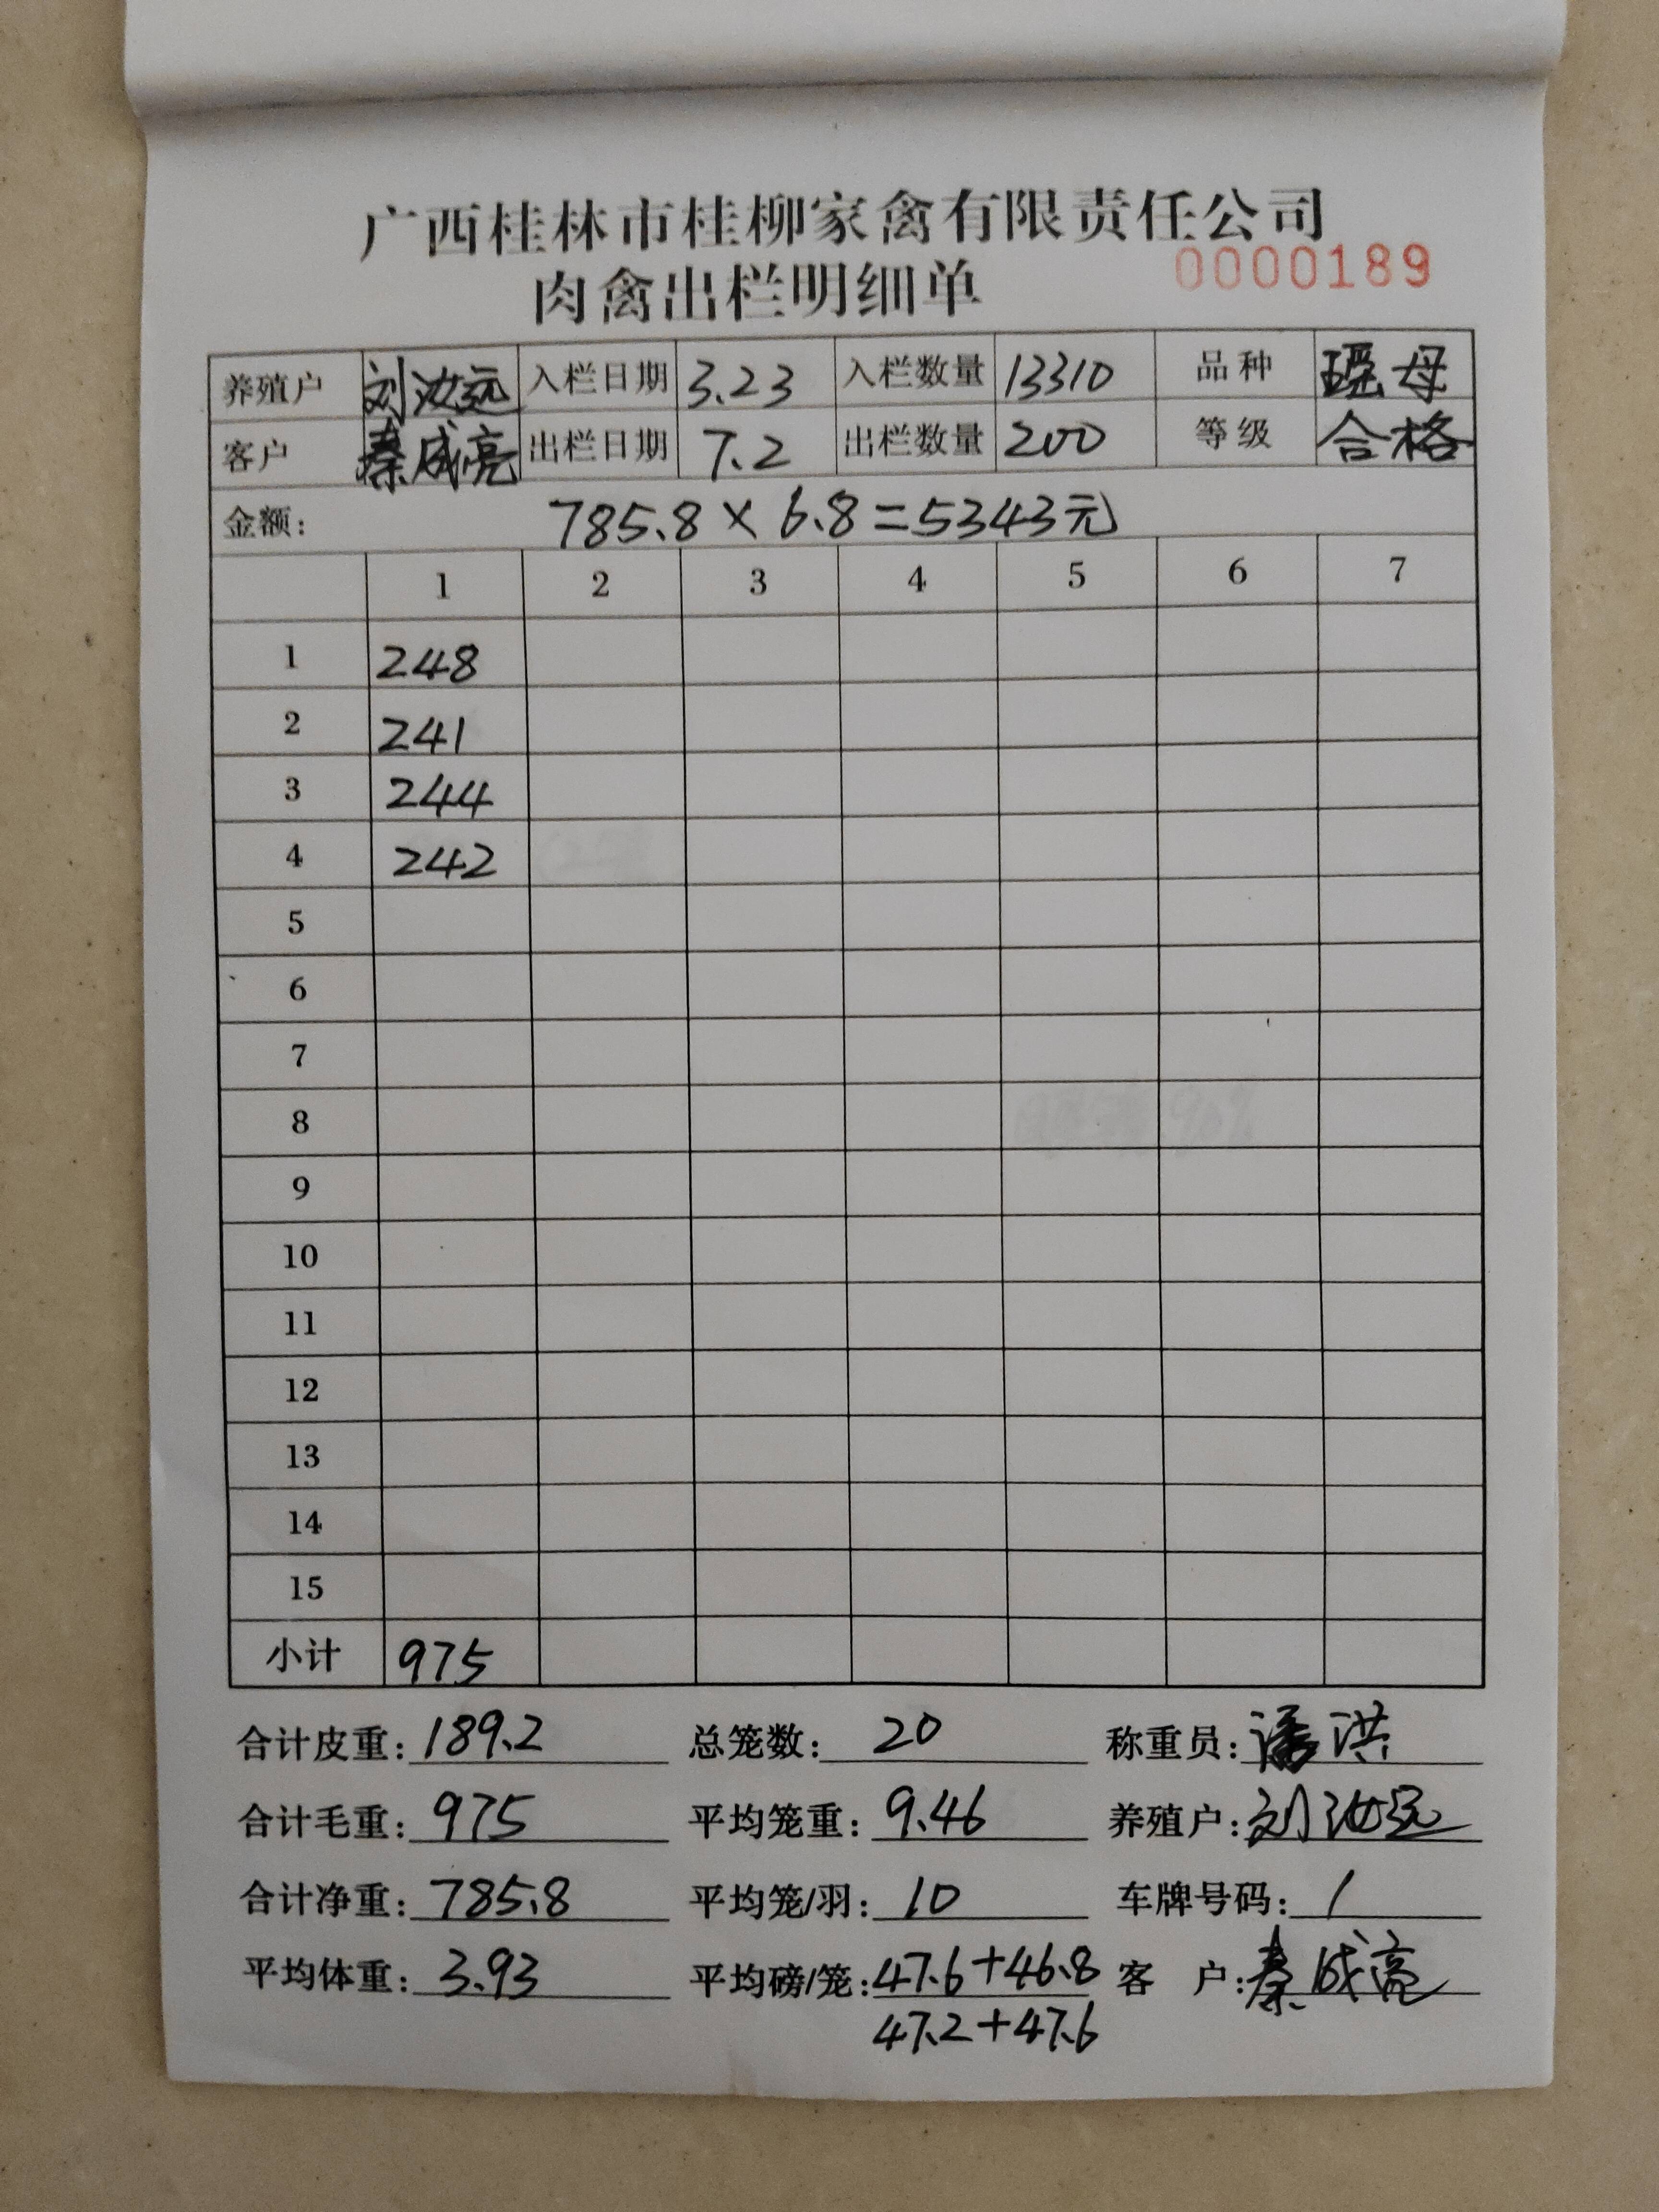 广西桂林市桂柳家禽有限责任公司
肉禽出栏明细单 0000189
养殖户 刘汝远 入栏日期 3.23 入栏数量 13310 品种 瑶母
客户 秦成亮 出栏日期 7.2 出栏数量 200 等级 合格
金额: 785.8×6.8=5343元
1 2 3 4 5 6 7
1 248
2 241
3 244
4 242
5
6
7
8
9
10
11
12
13
14
15
小计 975
合计皮重: 189.2 总笼数: 20 称重员: 潘洪
合计毛重: 975 平均笼重: 9.46 养殖户: 刘汝远
合计净重: 785.8 平均笼/羽: 10 车牌号码: /
平均体重: 3.93 平均磅/笼: 47.6+46.8 客 户: 秦成亮
47.2+47.6